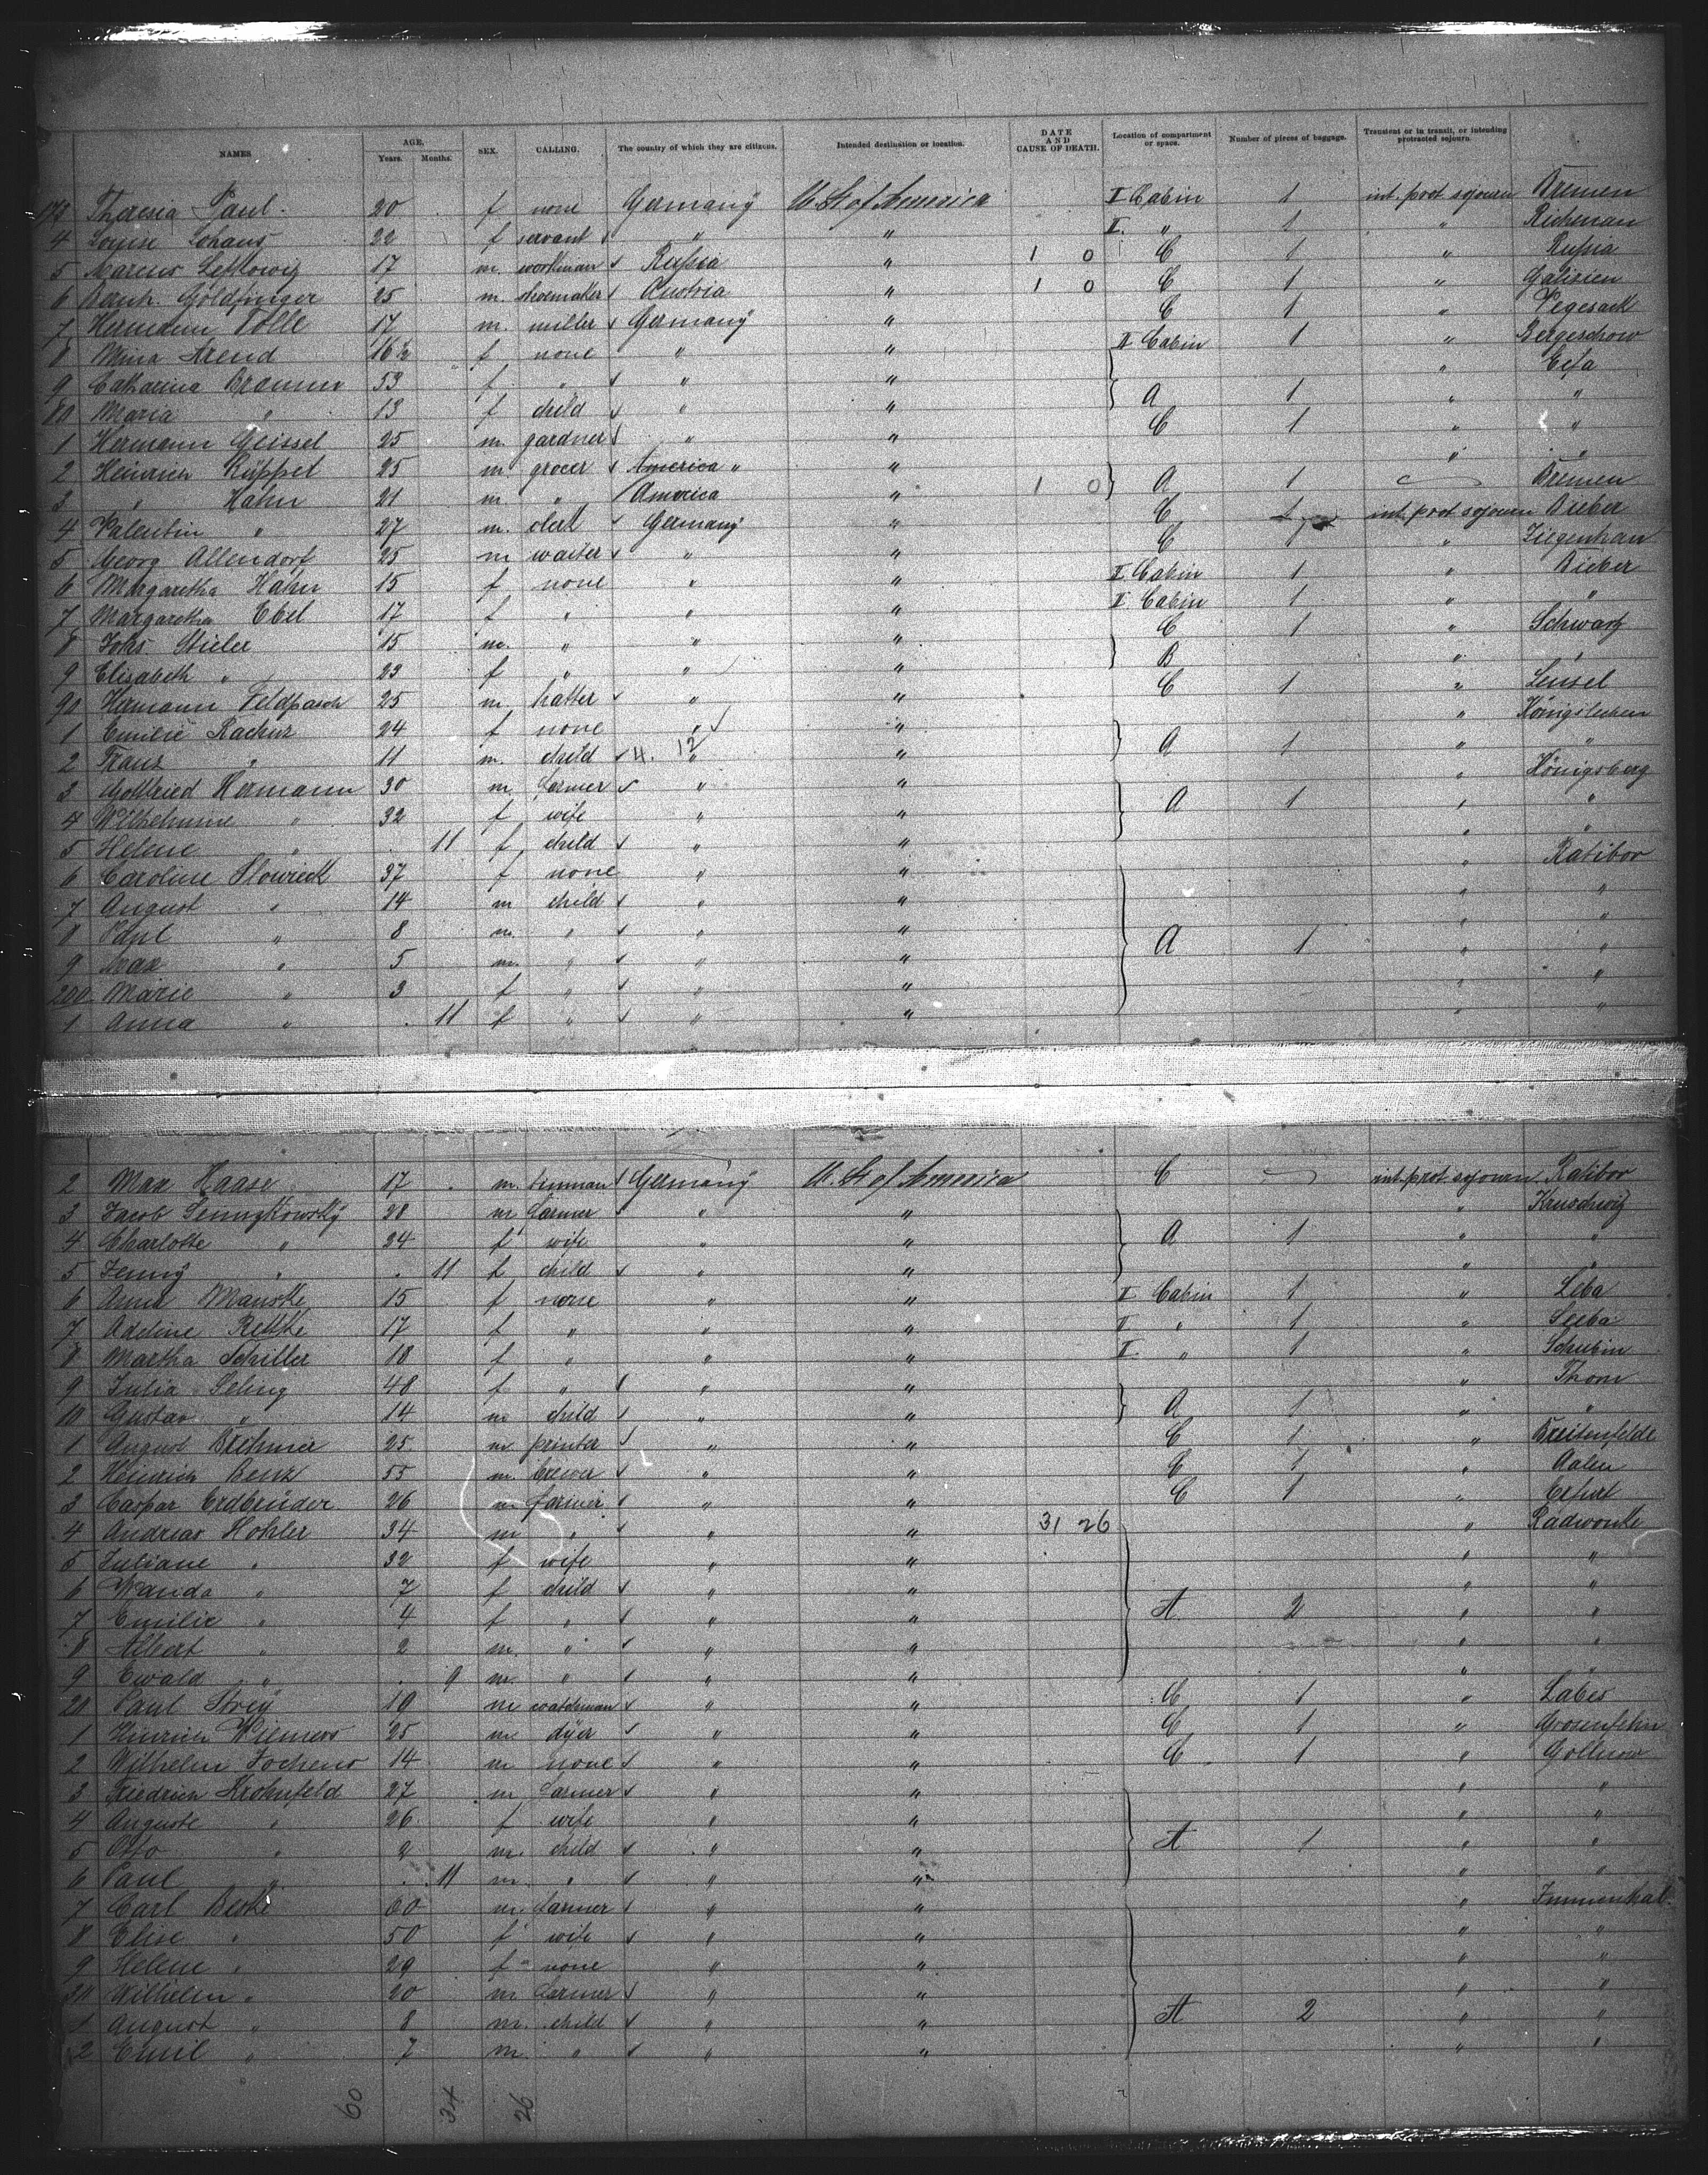 NAMES AGE. Years. Months. SEX. CALLING. The country of which they are citizens. Intended destination or location. DATE AND CAUSE OF DEATH. Location of compartment or space. Number of pieces of baggage. Transient or in transit, or intending protracted sojourn
Theresia Paul 20 f none Germany U. St of America II Cabin 1 int. prot sojourn Bremen
4 Louise Lohaus 22 f servant " " II. " 1 "
5 Marcus 17 m. workman Rußia " 1 0 C 1 " Rußia
6 Goldfinger 25 m. shoemaker Austria " 1 0 C 1 " Galizien
7 Hermann Tölle 17 m. miller Germany " C 1 " Vegesack
8 Mina Arend 16½ f none " " II Cabin 1 "
9 Catharina 53 f " " " "
80 Maria " 13 f child " " A 1 " "
1 Hermann Geissel 25 m. gardner " " C 1 " "
2 Heinrich Rüppel 25 m grocer America " " " "
3 " Hahn 21 m " America " 1 0 A 1 Bremen
4 Valentin " 27 m. clerk Germany " C 1 int. prot sojourn Bieber
5 Georg Allendorf 25 m waiter " " C 1 " Ziegenhan
6 Margaretha Hahn 15 f none " " II Cabin 1 " Bieber
7 Margaretha Ebel 17 f " " " II Cabin 1 " "
8 Johs Stieler 15 m. " " " C 1 " Schwarz
9 Elisabeth " 23 f " " " B " "
90 Hermann Feldpasch 25 m hatter " " C 1 "
1 Emilie 24 f none " " "
2 Franz " 11 m. child 4. 12 " " A 1 " "
3 Gottfried Hermann 30 m farmer " " " Königsberg
4 Wilhelmine " 32 f wife " " A 1 " "
5 Helene " 11 f child " " " "
6 Caroline 37 f none " " " Ratibor
7 August " 14 m child " " " "
8 Paul " 8 m. " " " " "
9 Max " 5 m. " " " A 1 " "
200 Marie " 3 f " " " " "
1 Anna " 11 f " " " " "
2 Max Haase 17 m. Germany U. St of America C int. prot sojourn Ratibor
3 Jacob 28 m farmer " " " Kruschwitz
4 Charlotte " 24 f wife " " A 1 " "
5 Jenny " 11 f child " " " "
6 Anna Manske 15 f none " " II Cabin 1 " Leba
7 Adeline Rettke 17 f " " " II " 1 "
8 Martha Schiller 18 f " " " II " 1 " Schubin
9 Julia Seling 48 f " " " " Thorn
10 Gustav " 14 m child " " A 1 " "
1 August Brehmer 25 m printer " " C 1 " Breitenfelde
2 Heinrich Benz 55 m. brewer " " C 1 " Aalen
3 Caspar Erdbrüder 26 m farmer " " C 1 " Erfurt
4 Andreas Hohler 34 m " " " 31 26 " Radwonke
5 Juliane " 32 f wife " " " "
6 Wanda " 7 f child " " " "
7 Emilie " 4 f " " " A 2 " "
8 Albert " 2 m. " " " " "
9 Ewald " 9 m. " " " " "
20 Paul Strey 19 m watchman " " C 1 " Labes
1 Hinrich Wiemers 25 m dyer " " C 1 " Grosenfehn
2 Wilhelm Jochens 14 m none " " C 1 " Gollnow
3 Friedrich Krohnfeld 27 m farmer " " " "
4 Auguste " 26 f wife " " " "
5 Otto " 2 m. child " " A 1 " "
6 Paul " 11 m. " " " " "
7 Carl Beske 60 m. farmer " " " Immenthal
8 Elise " 50 f wife " " " "
9 Helene " 29 f none " " " "
30 Wilhelm " 20 m farmer " " " "
1 August " 8 m. child " " A 2 " "
2 Emil " 7 m " " " " "
60 34 26